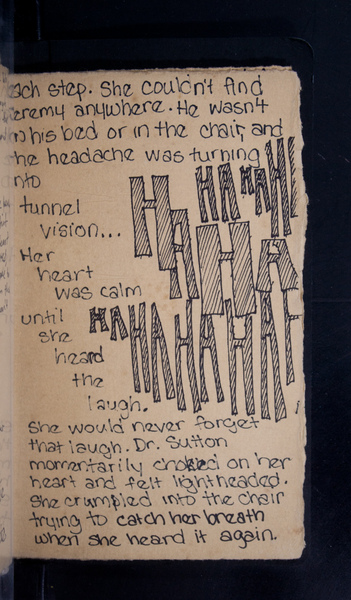 each step. She couldn't find
Jeremy anywhere. He wasn't
in his bed or in the chair, and
the headache was turning
into
tunnel
vision...
Her
heart
was calm
until
she
heard
the
laugh.
HAHAHAH
HAHA
HAHAHAHAHA
She would never forget
that laugh. Dr. Sutton
momentarily choked on her
heart and felt lightheaded.
She crumpled into the chair
trying to catch her breath
when she heard it again.